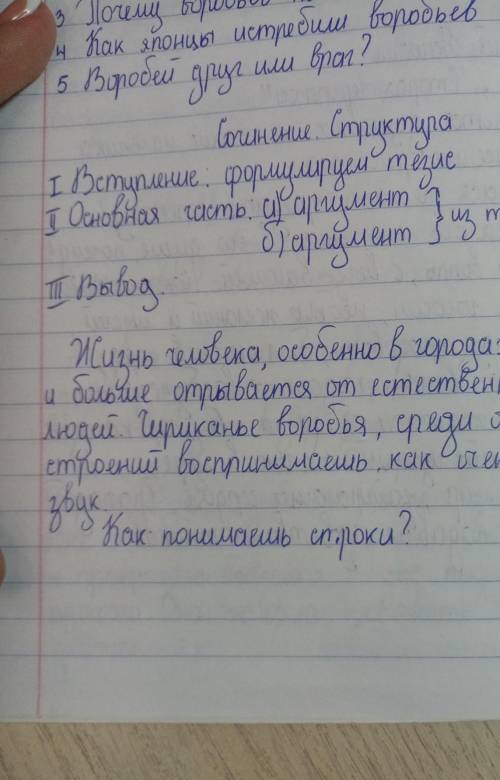 3 Почему
4 Как японцы истребили воробьев
5 Воробей друг или враг?
Сочинение. Структура
I Вступление: формулируем тезис
II Основная часть: а) аргумент } из
б) аргумент
III Вывод.
Жизнь человека, особенно в города
и больше отрывается от естествен
людей. Чириканье воробья, среди
строений воспринимаешь, как очен
звук.
Как понимаешь строки?